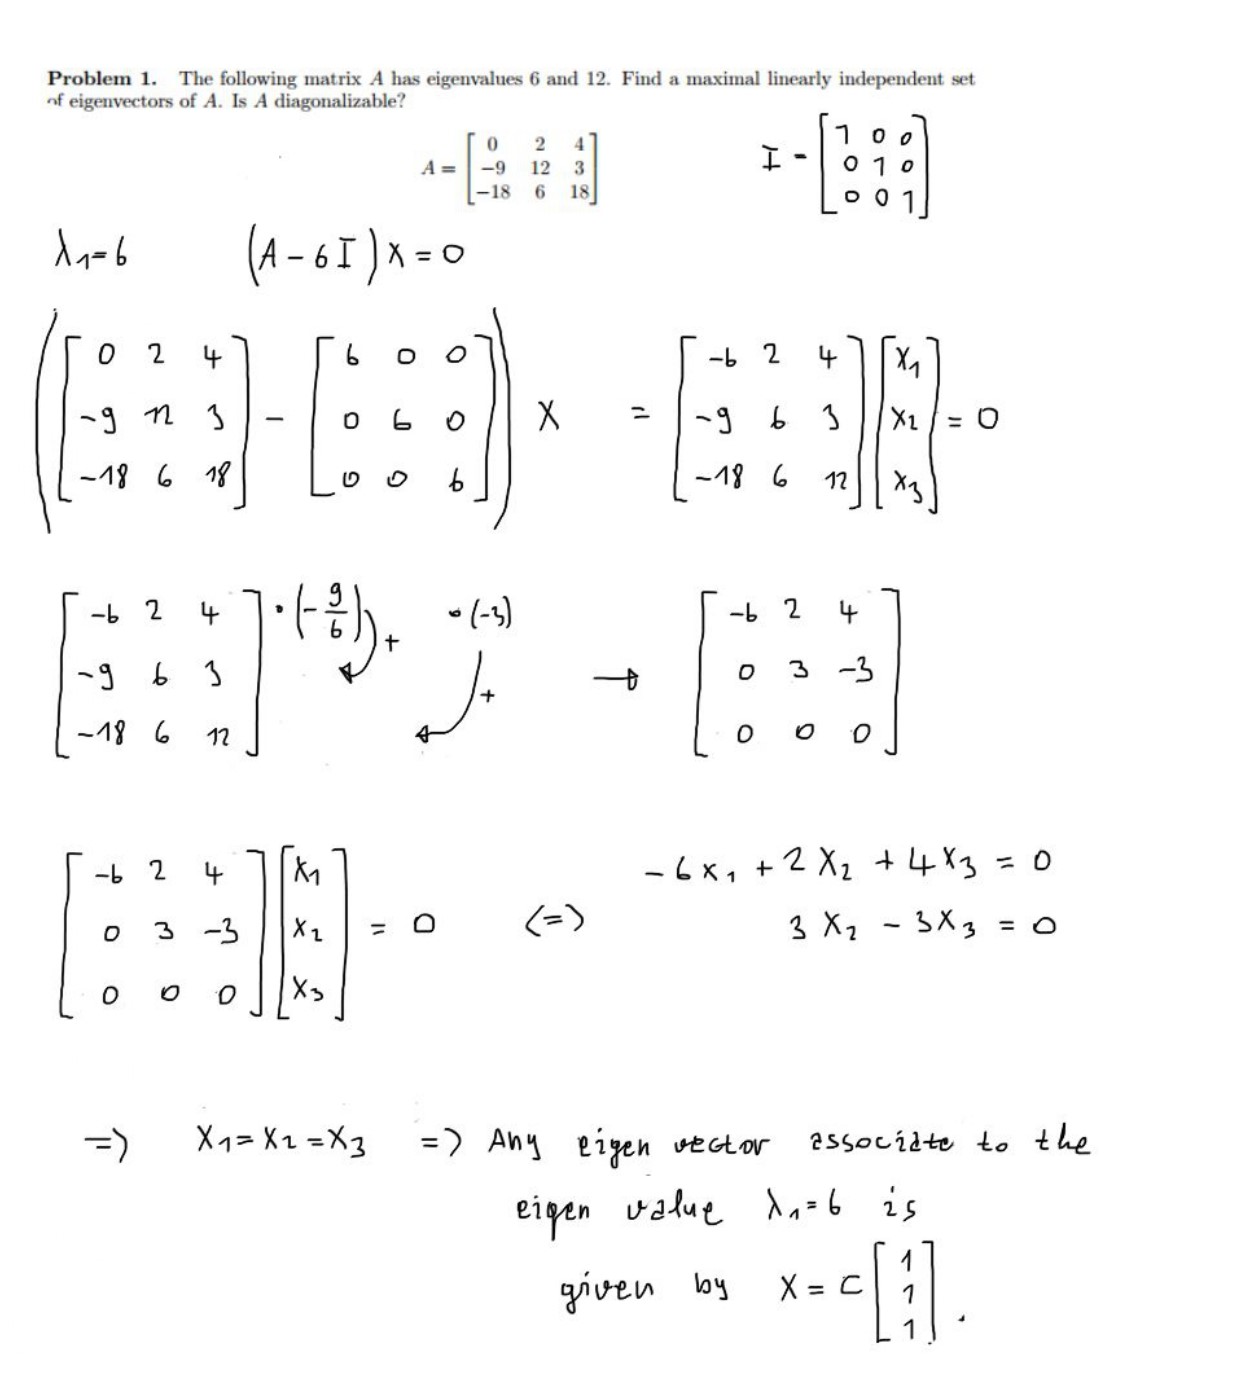 Problem 1. The following matrix A has eigenvalues 6 and 12. Find a maximal linearly independent set
of eigenvectors of A. Is A diagonalizable?
A = [0 2 4; -9 12 3; -18 6 18]
I = [1 0 0; 0 1 0; 0 0 1]
λ₁=6 (A - 6I)X = 0
([0 2 4; -9 12 3; -18 6 18] - [6 0 0; 0 6 0; 0 0 6]) X = [-6 2 4; -9 6 3; -18 6 12] [X₁; X₂; X₃] = 0
[-6 2 4; -9 6 3; -18 6 12] ·(-9/6) + ·(-3) + → [-6 2 4; 0 3 -3; 0 0 0]
[-6 2 4; 0 3 -3; 0 0 0] [X₁; X₂; X₃] = 0 <=>
-6x₁ + 2X₂ + 4X₃ = 0
3X₂ - 3X₃ = 0
=> X₁=X₂=X₃ => Any eigen vector associate to the
eigen value λ₁=6 is
given by X = C [1; 1; 1].